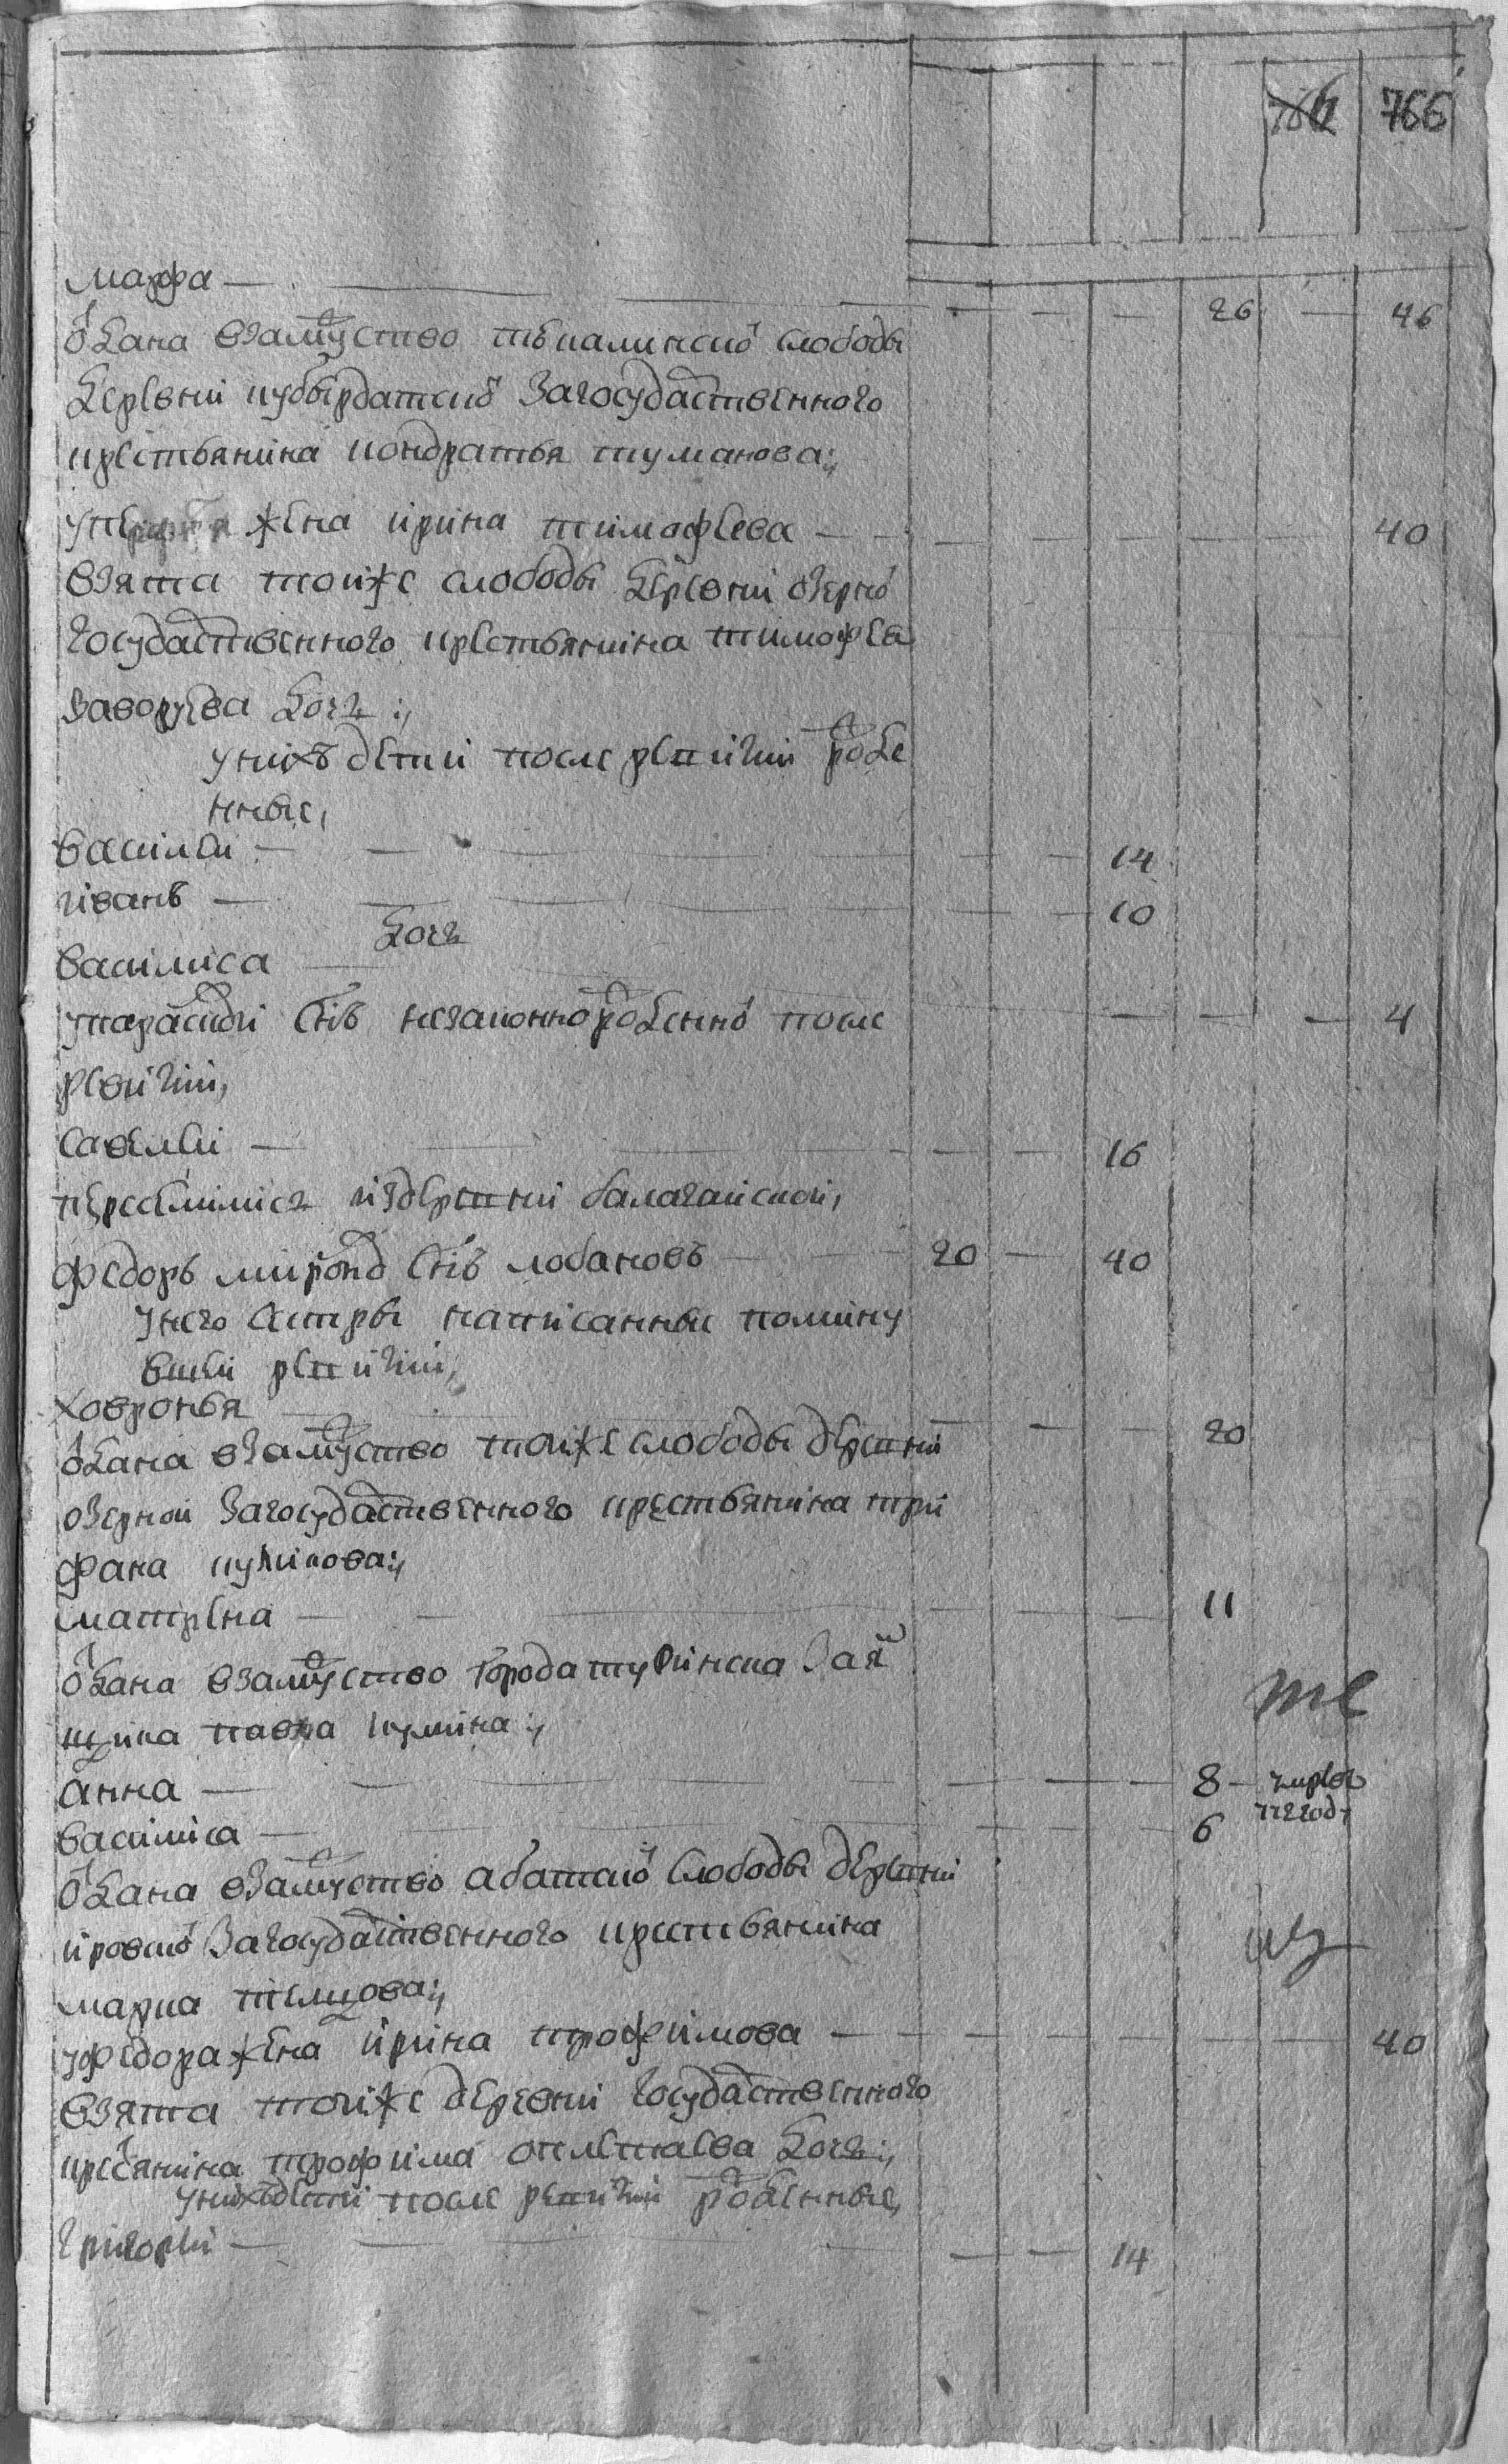 766
марфа — 26 — 46
одана взамуство тебалинской слободы
деревни кубырдатской за государственного
крестьянина кондратья туманова;
у жена ирина тимофеева — 40
взята той же слободы деревни озерной
государственного крестьянина тимофея
заворуева дочь;
у них дети после ревизии рожде
нные,
василей — 14
иванъ — 10
дочь
василиса — 4
у параскви снъ незаконнорожденной после
ревизии,
савелей — 16
переселились из деревни балаганской,
федоръ миронов снъ лобановъ — 20 — 40
у него сестры написанные по мину
вшей ревизии,
ховронья — 20
одана взамуство той же слободы деревни
озерной за государственного крестьянина три
фана куликова;
матрена — 11
одана взамуство города туринска за я
мщика павла кумина;
анна — 8 — умре в
василиса — 6
одана взамуство абатской слободы деревни
ировской за государственного крестьянина
марка телцова;
у федора жена ирина трофимова — 40
взята той же деревни государственного
крестянина трофима дочь;
у них дети после ревизии рожденные,
григорей — 14